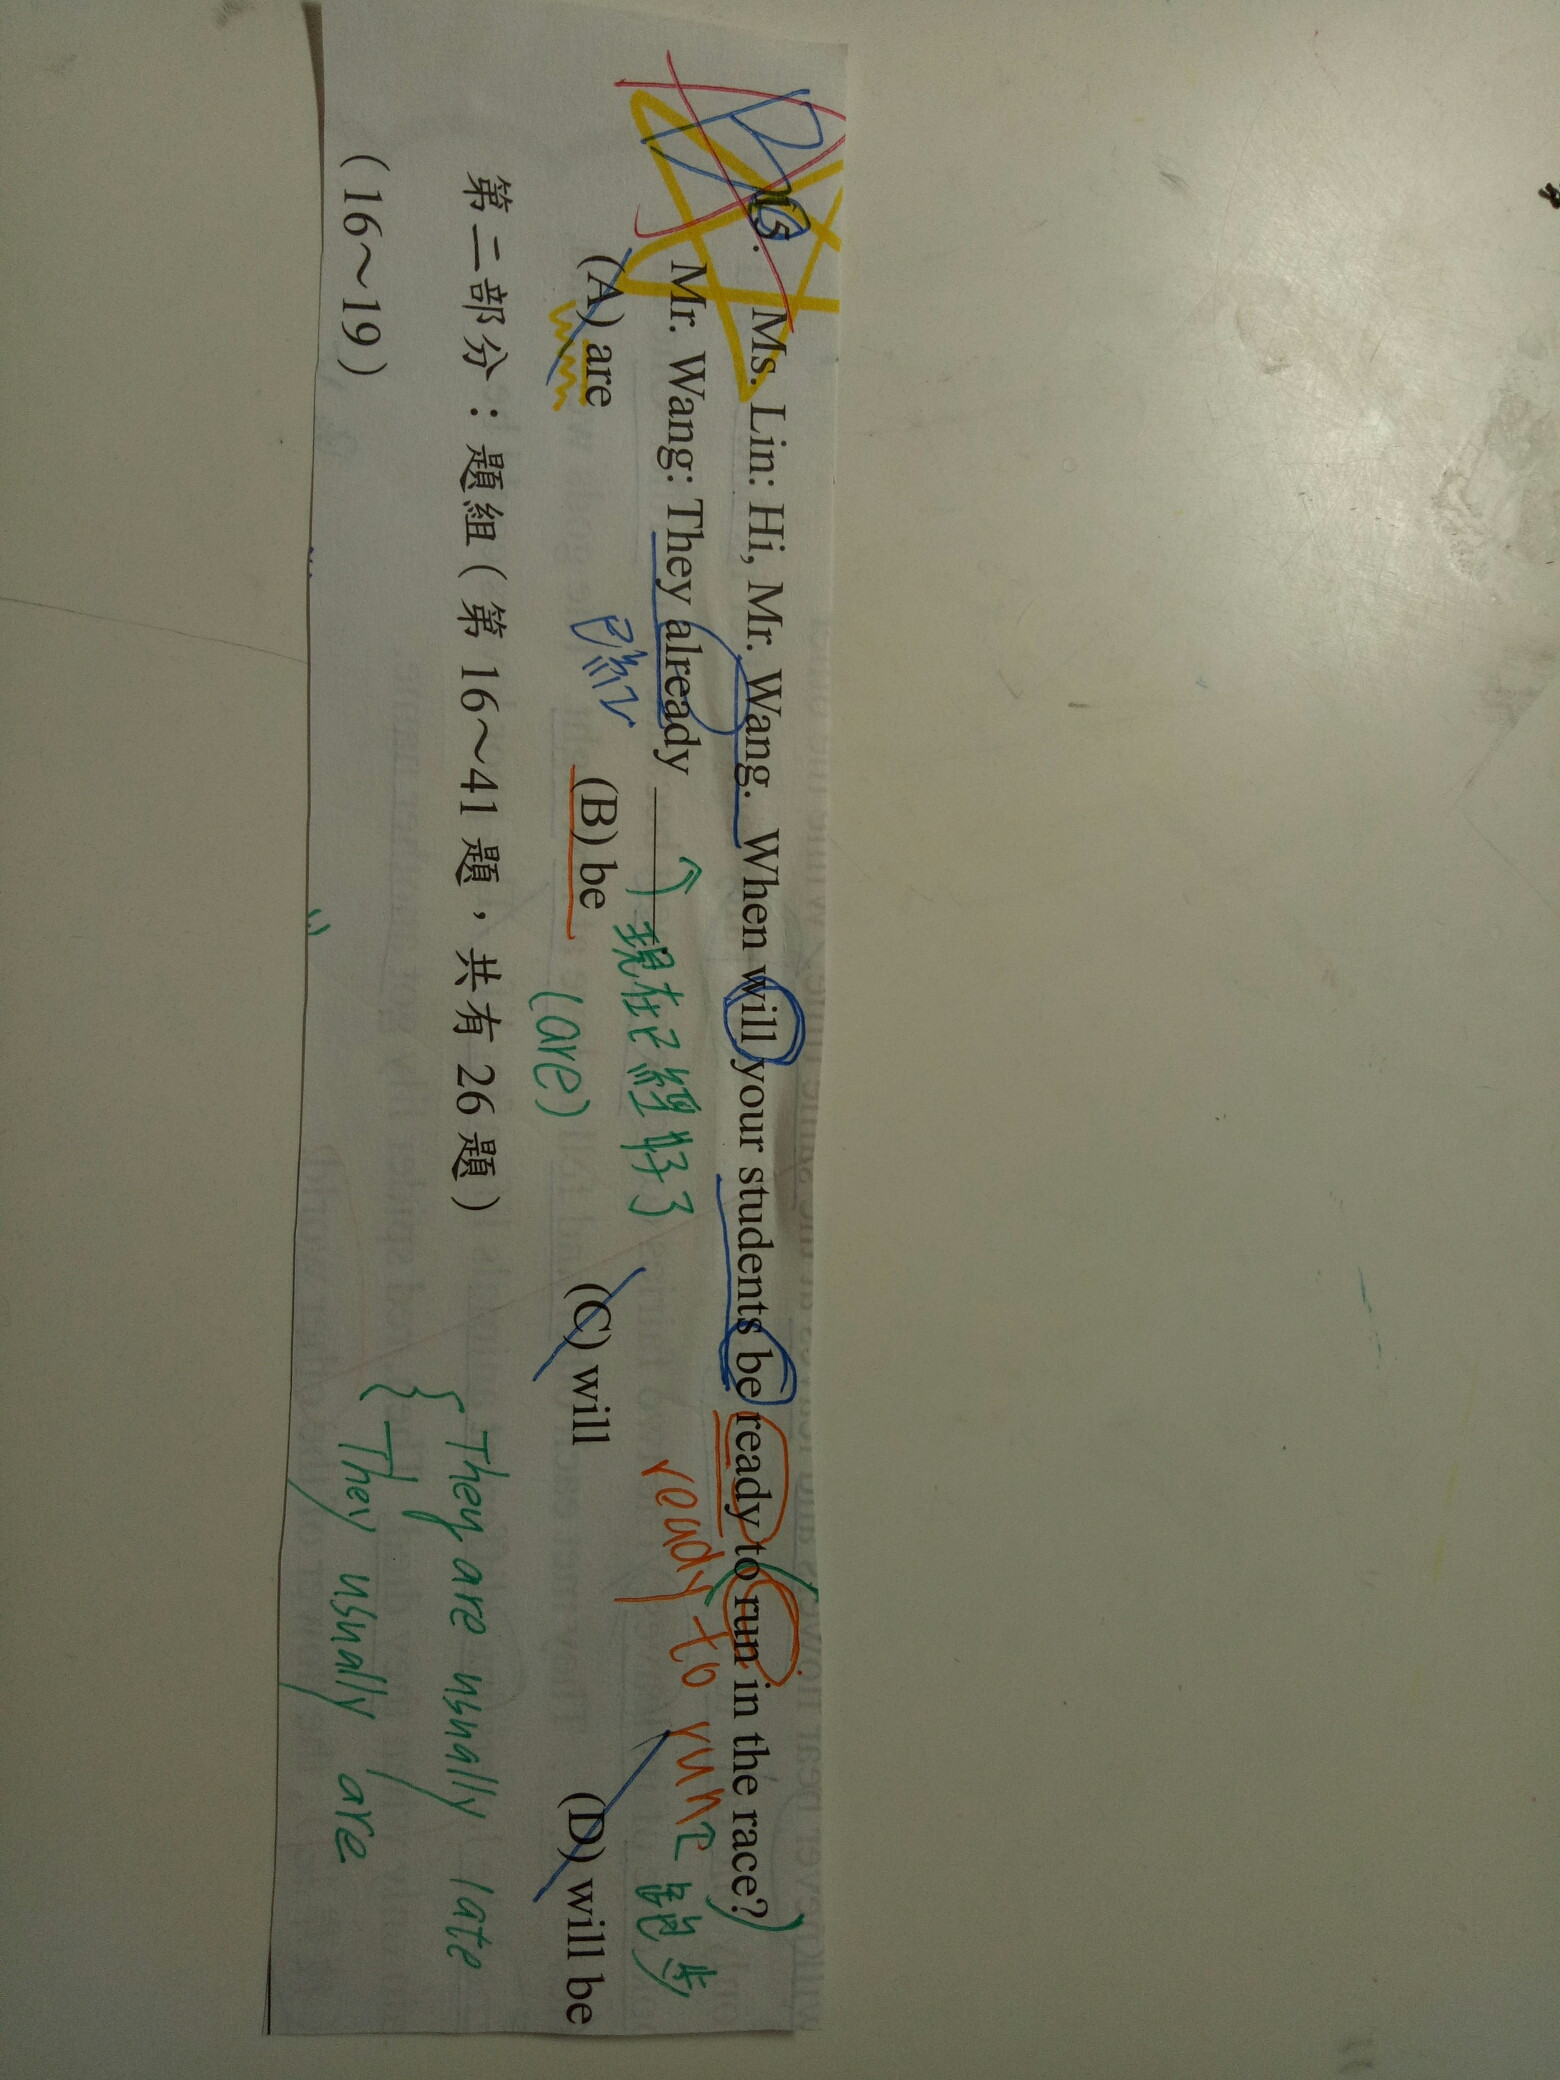 15. Ms. Lin: Hi, Mr. Wang. When will your students be ready to run in the race?
Mr. Wang: They already ______.
ready to run 跑步
已經
現在已經好了
(A) are (B) be (C) will (D) will be
(are)
第二部分：題組（第 16～41 題，共有 26 題）
They are usually late
(16～19)
They usually are